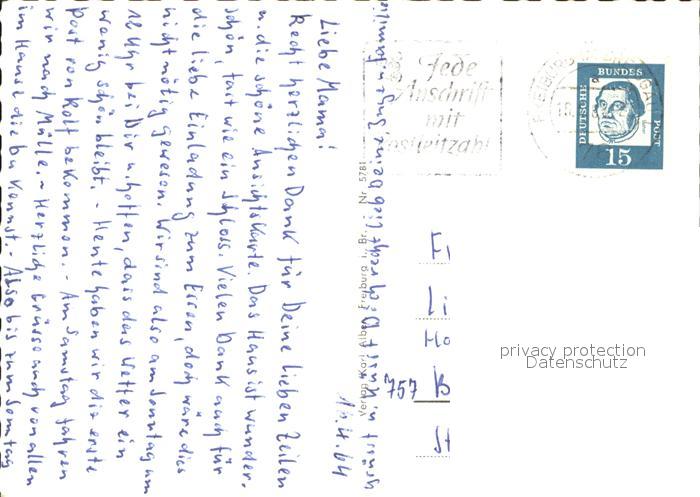 16.4.64
Liebe Mama!
Recht herzlichen Dank für Deine lieben Zeilen
u. die schöne Ansichtskarte. Das Haus ist wunder-
schön, fast wie ein Schloss. Vielen Dank auch für
die liebe Einladung zum Essen, doch wäre dies
nicht nötig gewesen. Wir sind also am Sonntag um
12 Uhr bei Dir u. hoffen, dass das Wetter ein
wenig schön bleibt. - Heute haben wir die erste
Post von Rolf bekommen. - Am Samstag fahren
wir nach Müllh. - Herzliche Grüsse auch von allen
im Hause die Du kennst - Also bis zum Sonntag
grüsst u. küsst Dich recht lieb Deine
Verlag Karl Alber, Freiburg i. Br. Nr. 5781
Jede
Anschrift
mit
Postleitzahl
DEUTSCHE BUNDESPOST
15
Fr
Li
Ho
757 B
St
privacy protection
Datenschutz